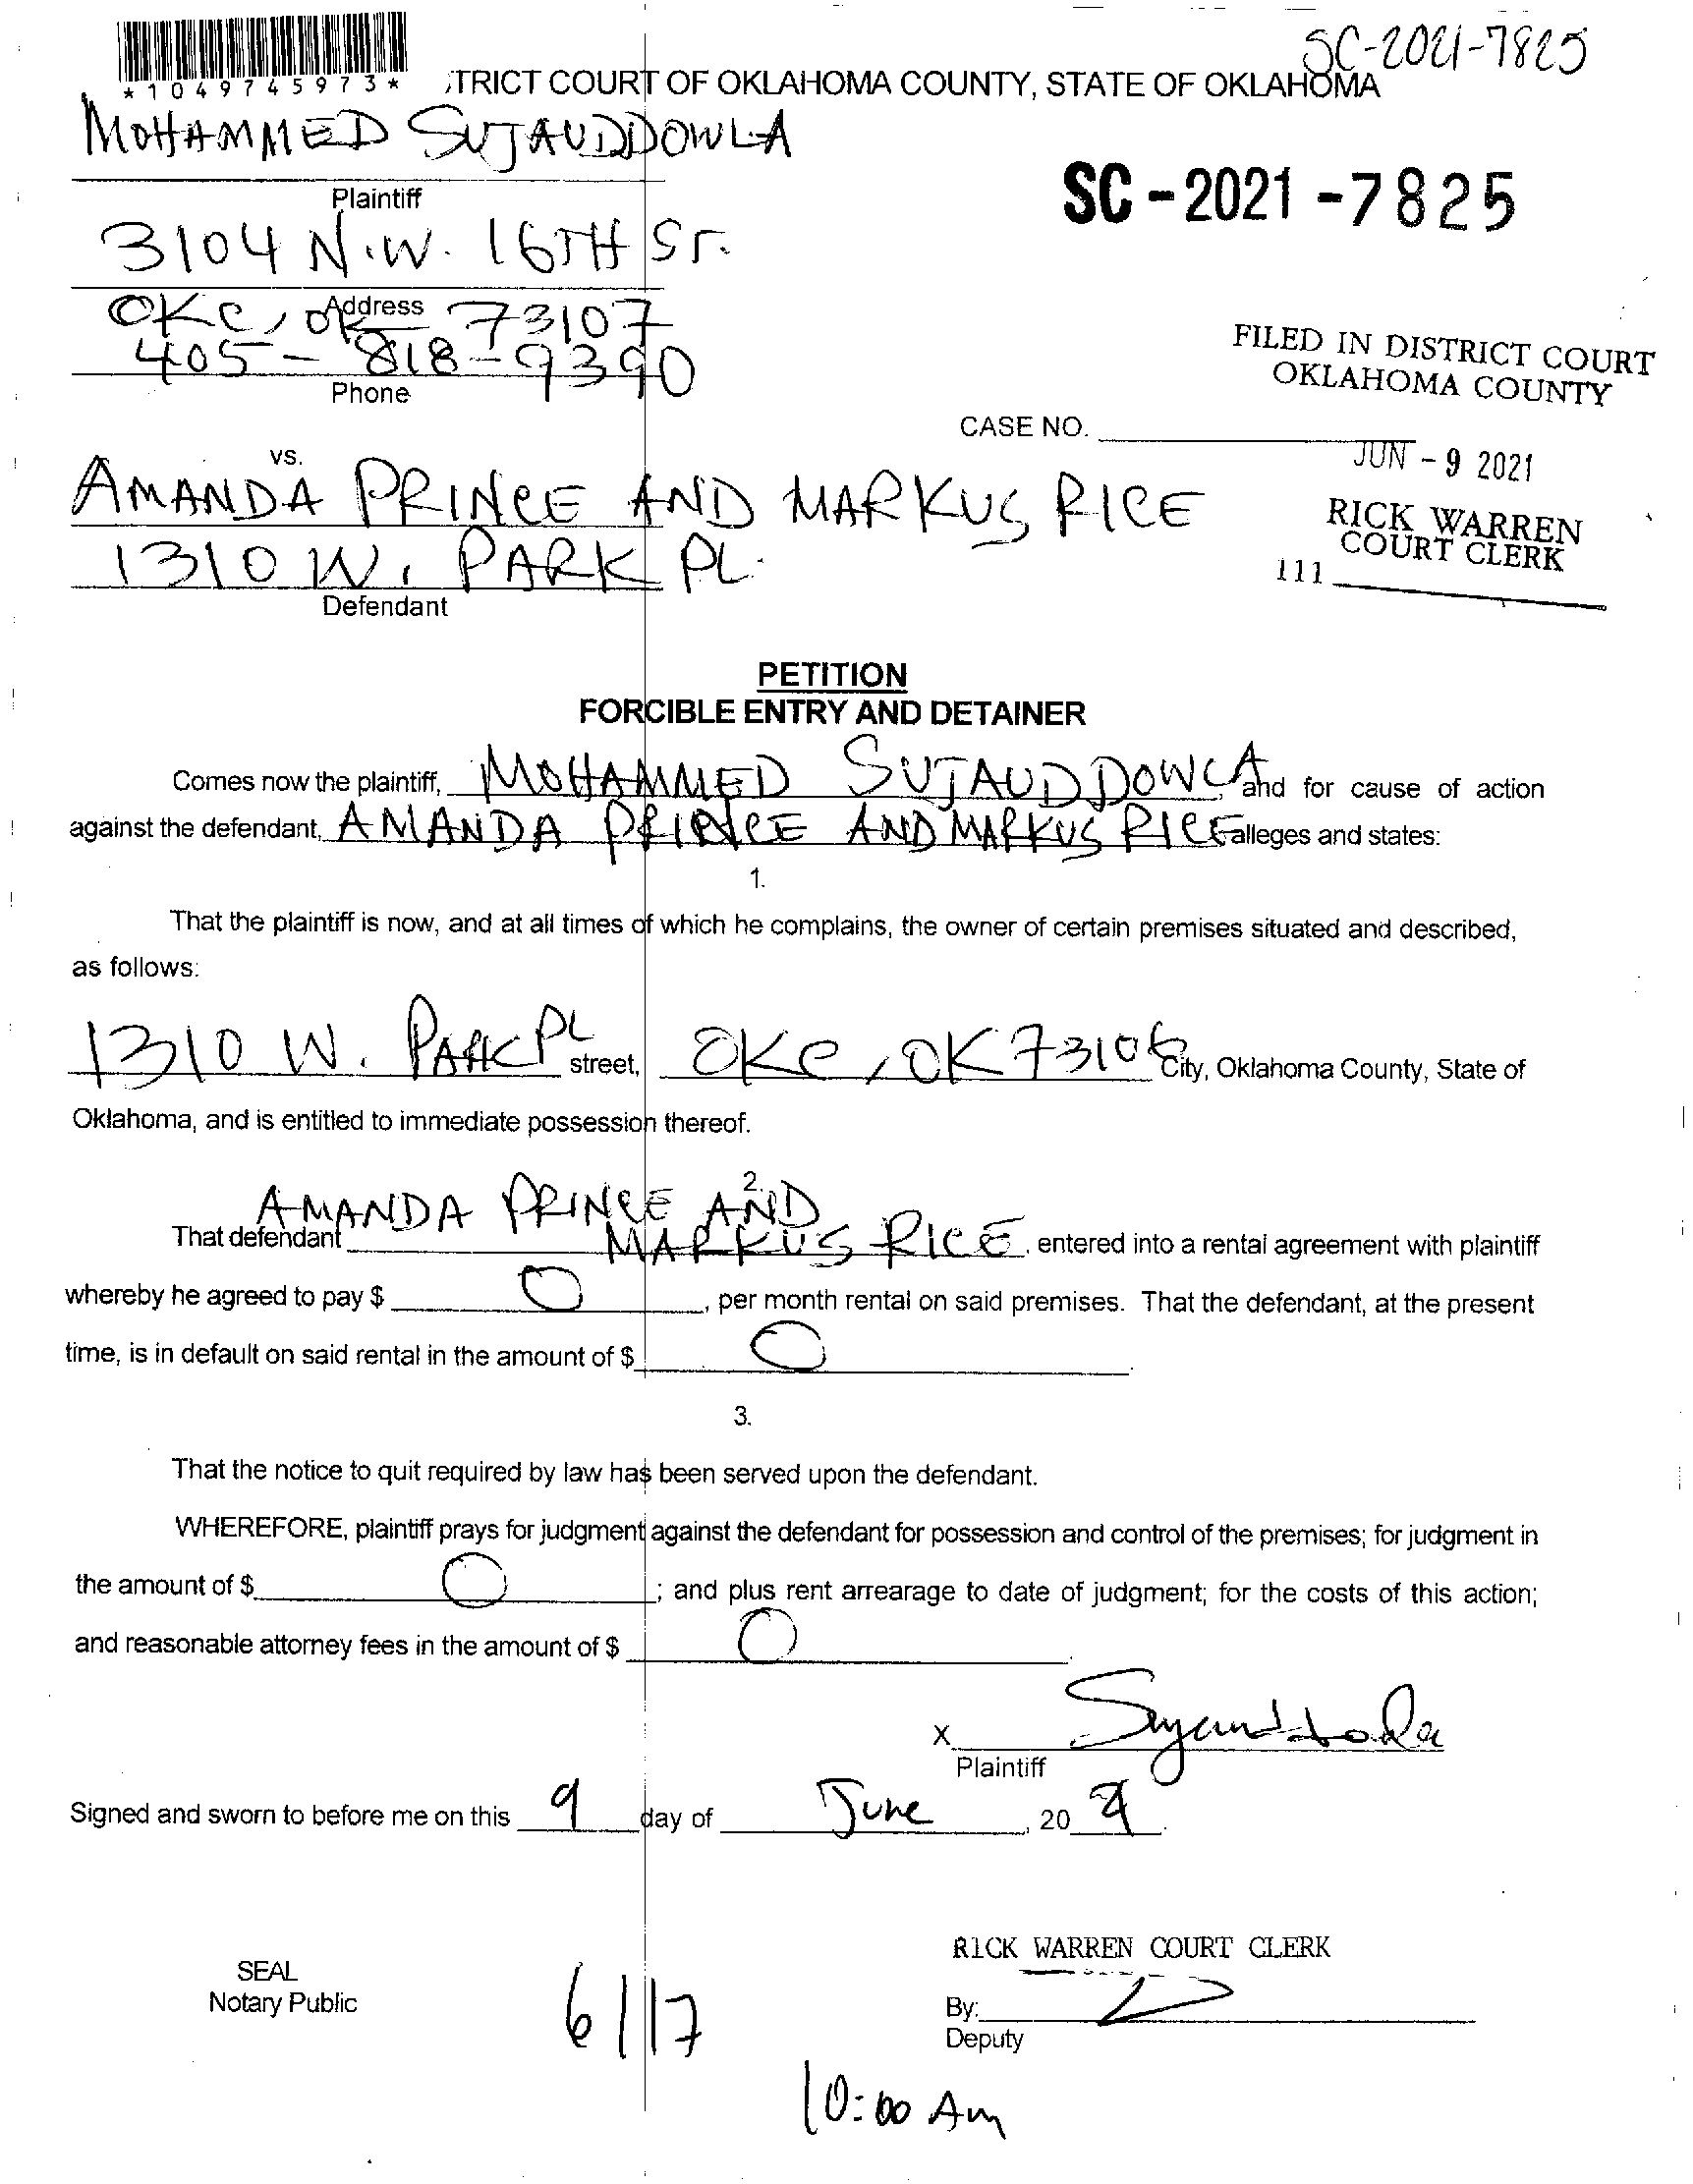 SC-2021-7825
*1049745973*
TRICT COURT OF OKLAHOMA COUNTY, STATE OF OKLAHOMA
MOHAMMED SUJAUDDOWLA
Plaintiff
SC-2021-7825
3104 N.W. 16TH ST.
Address
OKC, OK 73107
405-818-9390
Phone
FILED IN DISTRICT COURT
OKLAHOMA COUNTY
CASE NO.
JUN - 9 2021
vs.
AMANDA PRINCE AND MARKUS RICE
RICK WARREN
COURT CLERK
1310 W. PARK PL.
111
Defendant
PETITION
FORCIBLE ENTRY AND DETAINER
Comes now the plaintiff, MOHAMMED SUJAUDDOWLA and for cause of action
against the defendant, AMANDA PRINCE AND MARKUS RICE alleges and states:
1.
That the plaintiff is now, and at all times of which he complains, the owner of certain premises situated and described,
as follows:
1310 W. PARK PL street, OKC, OK 73106 City, Oklahoma County, State of
Oklahoma, and is entitled to immediate possession thereof.
2.
That defendant AMANDA PRINCE AND MARKUS RICE, entered into a rental agreement with plaintiff
whereby he agreed to pay $ 0, per month rental on said premises. That the defendant, at the present
time, is in default on said rental in the amount of $ 0.
3.
That the notice to quit required by law has been served upon the defendant.
WHEREFORE, plaintiff prays for judgment against the defendant for possession and control of the premises; for judgment in
the amount of $ 0; and plus rent arrearage to date of judgment; for the costs of this action;
and reasonable attorney fees in the amount of $ 0.
X
Plaintiff
Signed and sworn to before me on this 9 day of June, 20 21.
RICK WARREN COURT CLERK
SEAL
Notary Public
By:
Deputy
6/17
10:00 Am